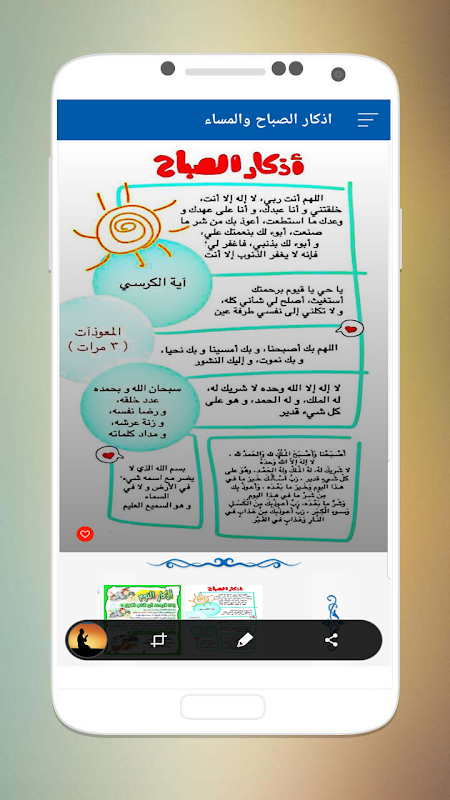 اذكار الصباح والمساء
أذكار الصباح
اللهم أنت ربي، لا إله إلا أنت،
خلقتني و أنا عبدك، و أنا على عهدك و
وعدك ما استطعت، أعوذ بك من شر ما
صنعت، أبوء لك بنعمتك علي،
و أبوء لك بذنبي، فاغفر لي
فإنه لا يغفر الذنوب إلا أنت
آية الكرسي
يا حي يا قيوم برحمتك
أستغيث، أصلح لي شأني كله،
و لا تكلني إلى نفسي طرفة عين
المعوذات
( ٣ مرات )
اللهم بك أصبحنا، و بك أمسينا و بك نحيا،
و بك نموت، و إليك النشور
سبحان الله و بحمده
عدد خلقه،
و رضا نفسه،
و زنة عرشه،
و مداد كلماته
لا إله إلا الله وحده لا شريك له،
له الملك، و له الحمد، و هو على
كل شيء قدير
بسم الله الذي لا
يضر مع اسمه شيء
في الأرض و لا في
السماء
و هو السميع العليم
أصبحنا وأصبح الملك لله والحمد لله
لا إله إلا الله وحده
لا شريك له، له الملك وله الحمد، وهو على
كل شيء قدير، رب أسألك خير ما في
هذا اليوم وخير ما بعده، وأعوذ بك
من شر ما في هذا اليوم
وشر ما بعده، رب أعوذ بك من الكسل
وسوء الكبر، رب أعوذ بك من عذاب في
النار وعذاب في القبر
أذكار النوم
أذكار الصباح